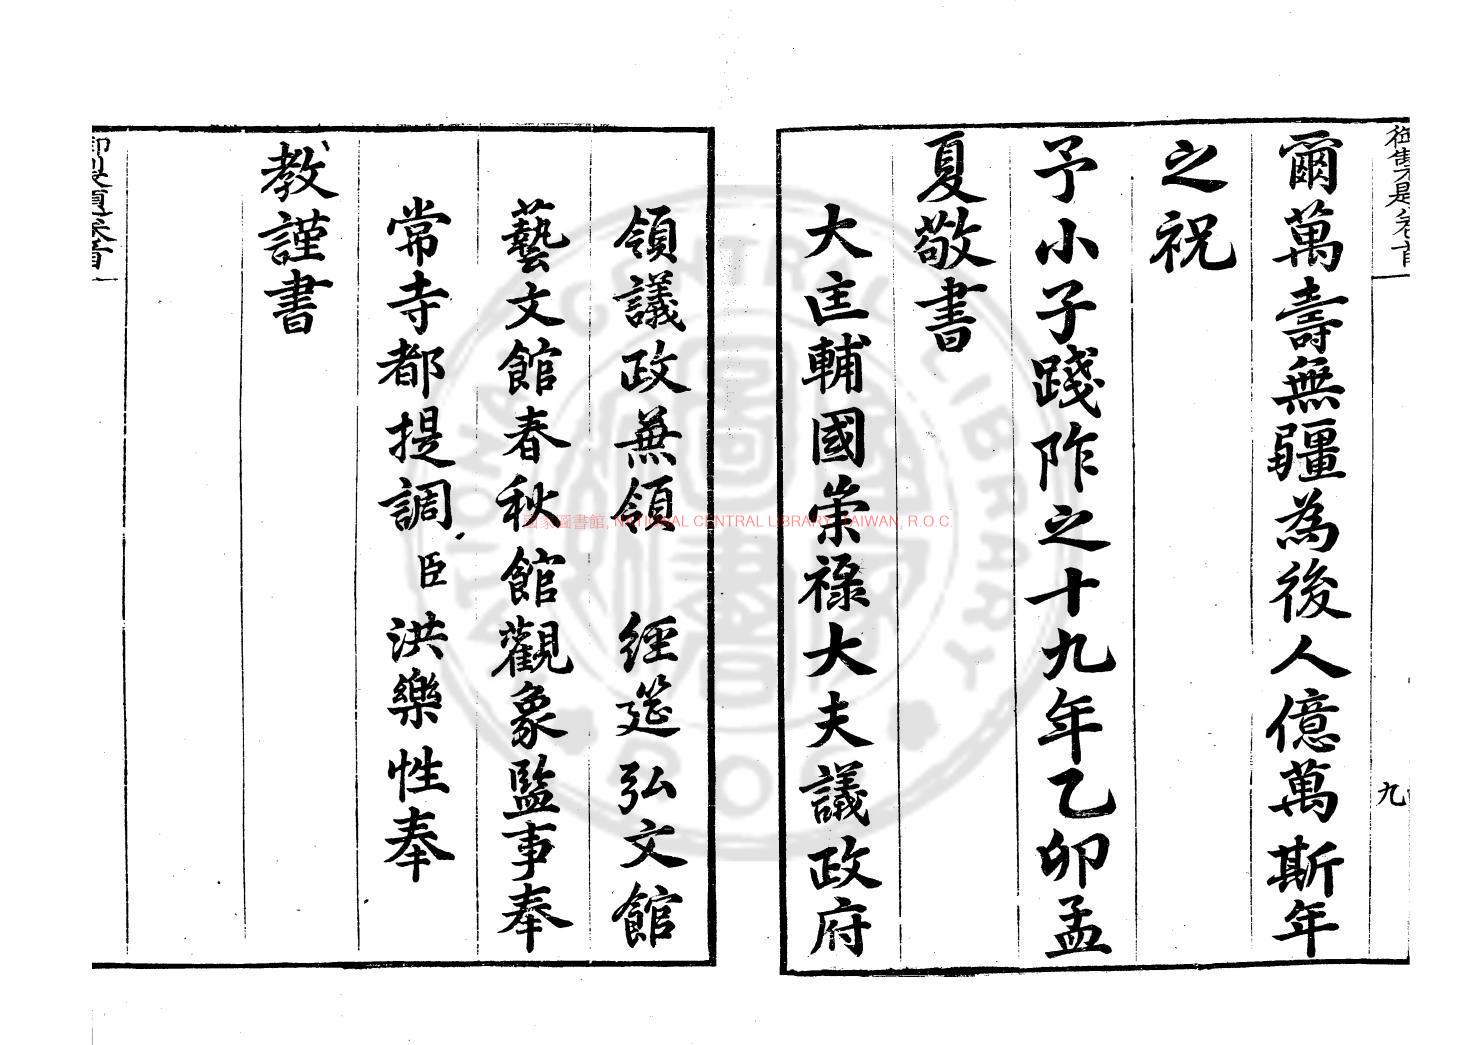 爾萬壽無疆為後人億萬斯年
之祝
予小子踐阼之十九年乙卯孟
夏敬書
大匡輔國崇祿大夫議政府
領議政兼領 經筵弘文館
藝文館春秋館觀象監事奉
常寺都提調臣洪樂性奉
教謹書
九
國家圖書館, NATIONAL CENTRAL LIBRARY, TAIWAN, R.O.C.